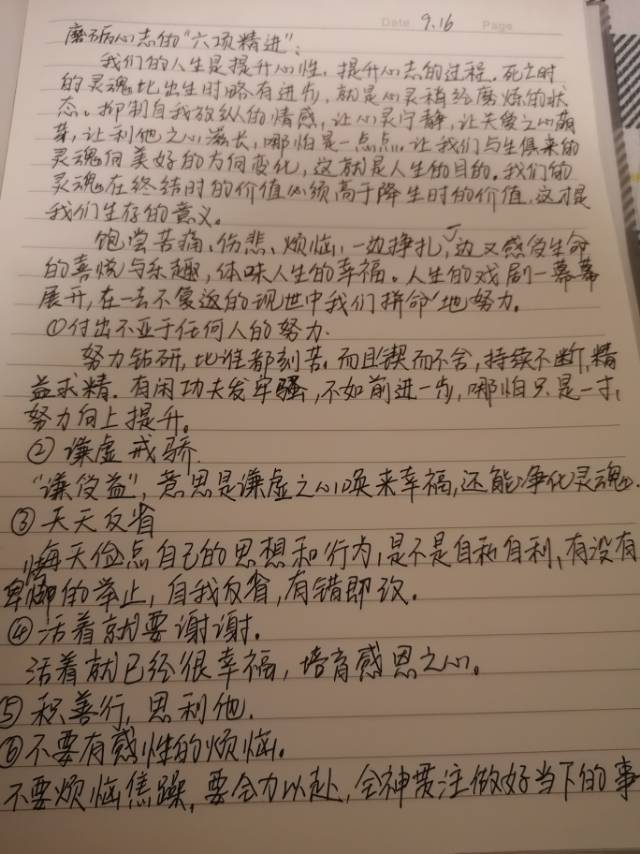 Date 9.16 Page
磨砺心志的“六项精进”:
我们的人生是提升心性,提升心志的过程。死亡时
的灵魂比出生时略有进步,就是心灵稍经磨炼的状
态。抑制自我放纵的情感,让心灵宁静,让关爱之心萌
芽,让利他之心滋长,哪怕是一点点,让我们与生俱来的
灵魂向美好的方向变化,这就是人生的目的。我们的
灵魂在终结时的价值必须高于降生时的价值,这才是
我们生存的意义。
饱尝苦痛、伤悲、烦恼,一边挣扎,边又感受生命
的喜悦与乐趣,体味人生的幸福。人生的戏剧一幕幕
展开,在一去不复返的现世中我们拼命地努力。
①付出不亚于任何人的努力.
努力钻研,比谁都刻苦,而且锲而不舍,持续不断,精
益求精.有闲功夫发牢骚,不如前进一步,哪怕只是一寸,
努力向上提升。
②谦虚戒骄.
“谦受益”,意思是谦虚之心唤来幸福,还能净化灵魂.
③天天反省
每天检点自己的思想和行为,是不是自私自利,有没有
卑鄙的举止,自我反省,有错即改.
④活着就要谢谢。
活着就已经很幸福,培育感恩之心。
⑤积善行,思利他.
⑥不要有感性的烦恼。
不要烦恼焦躁,要全力以赴,全神贯注做好当下的事